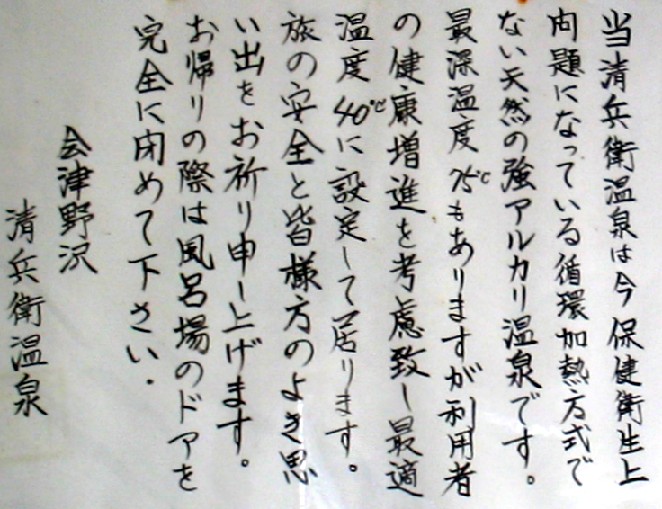 当清兵衛温泉は今保健衛生上
問題になっている循環加熱方式で
ない天然の強アルカリ温泉です。
最深温度75℃もありますが利用者
の健康増進を考慮致し最適
温度40℃に設定して居ります。
旅の安全と皆様方のよき思
い出をお祈り申し上げます。
お帰りの際は風呂場のドアを
完全に閉めて下さい.
会津野沢
清兵衛温泉